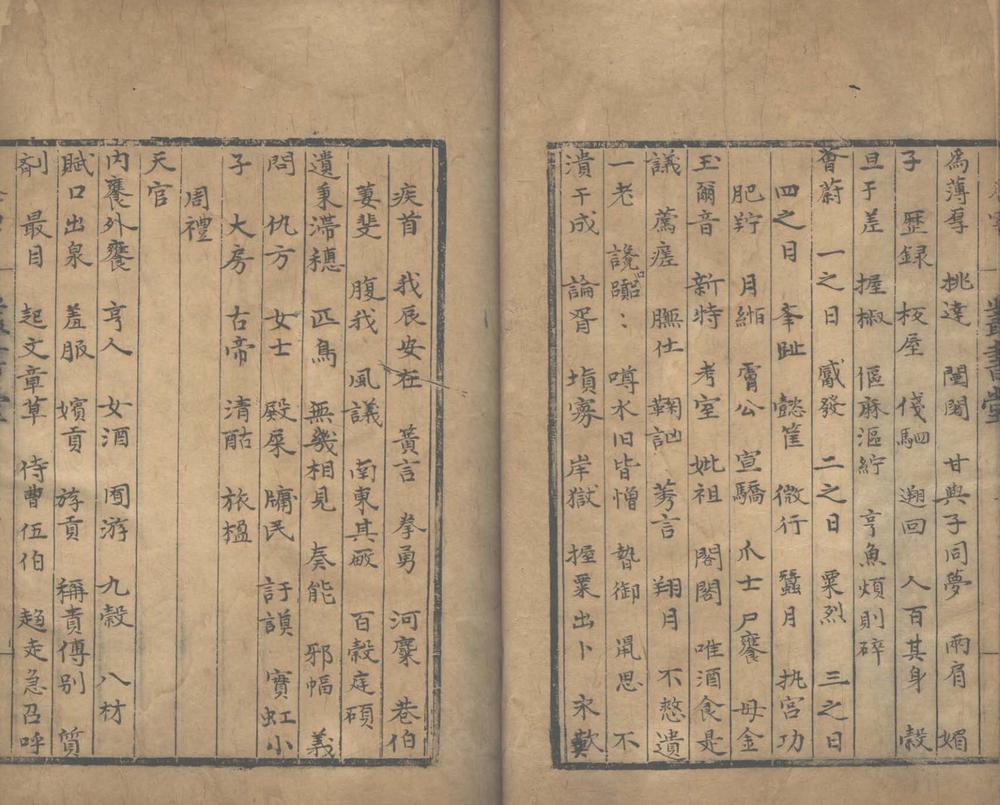 為薄辱　挑達　闉闍　甘與子同夢　兩肩　媚
子　歷録　板屋　俴駟　遡回　人百其身　榖
旦于差　握椒　傴麻漚紵　亨魚煩則碎
薈蔚　一之日　觱發　二之日　栗烈　三之日
四之日　奉趾　懿筐　微行　蠶月　執宮功
肥羜　月緪　霄公　宣驕　爪士　尸饔　毋金
玉爾音　新特　考室　妣祖　閣閣　唯酒食是
議　薦瘥　膴仕　鞠訩　莠言　翔月　不憗遺
一老　讒　噂水旧皆憎　暬御　鼠思　不
潰于成　論胥　填寡　岸獄　握粟出卜　永歎
疾首　我辰安在　簧言　拳勇　河麋　巷伯
萋斐　腹我　風議　南東其畝　百榖庭碩
遺秉滯穗　匹鳥　無幾相見　奏能　邪幅　義
問　仇方　女士　殿屎　牖民　訏謨　實虹小
子　大房　古帝　清酤　旅楹
周禮
天官
內饔外饔　亨人　女酒　囿游　九榖　八材
賦口出泉　羞服　嬪貢　斿貢　稱責傅別　質
劑　最目　起文章草　侍曹伍伯　趋走急召呼